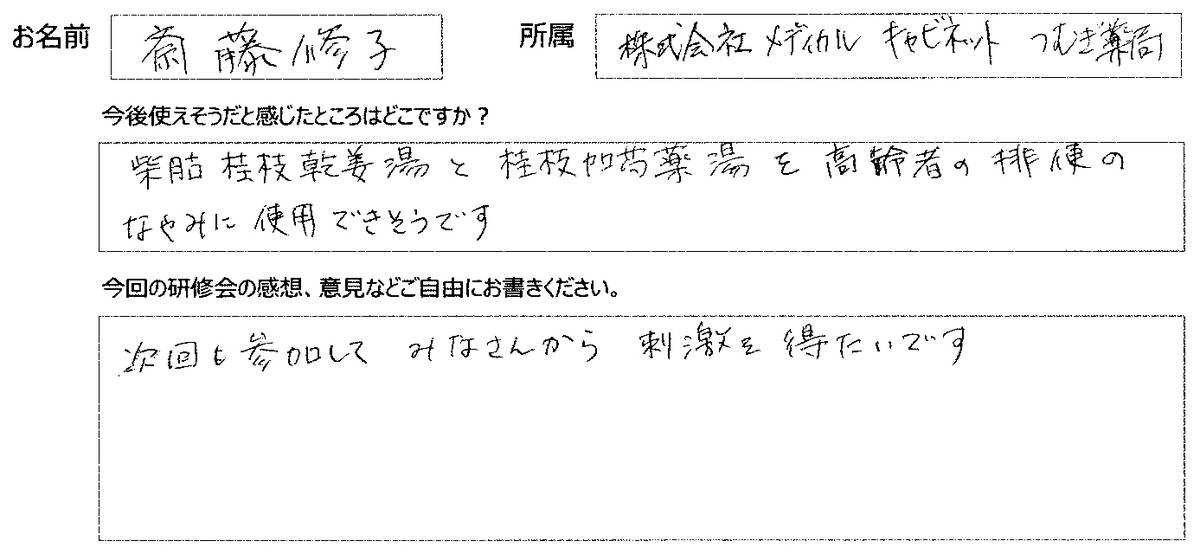 お名前 斎藤修子 所属 株式会社メディカルキャビネット つむぎ薬局
今後使えそうだと感じたところはどこですか?
柴胡桂枝乾姜湯と桂枝加芍薬湯を高齢者の排便の
なやみに使用できそうです
今回の研修会の感想、意見などご自由にお書きください。
次回も参加して みなさんから 刺激を得たいです